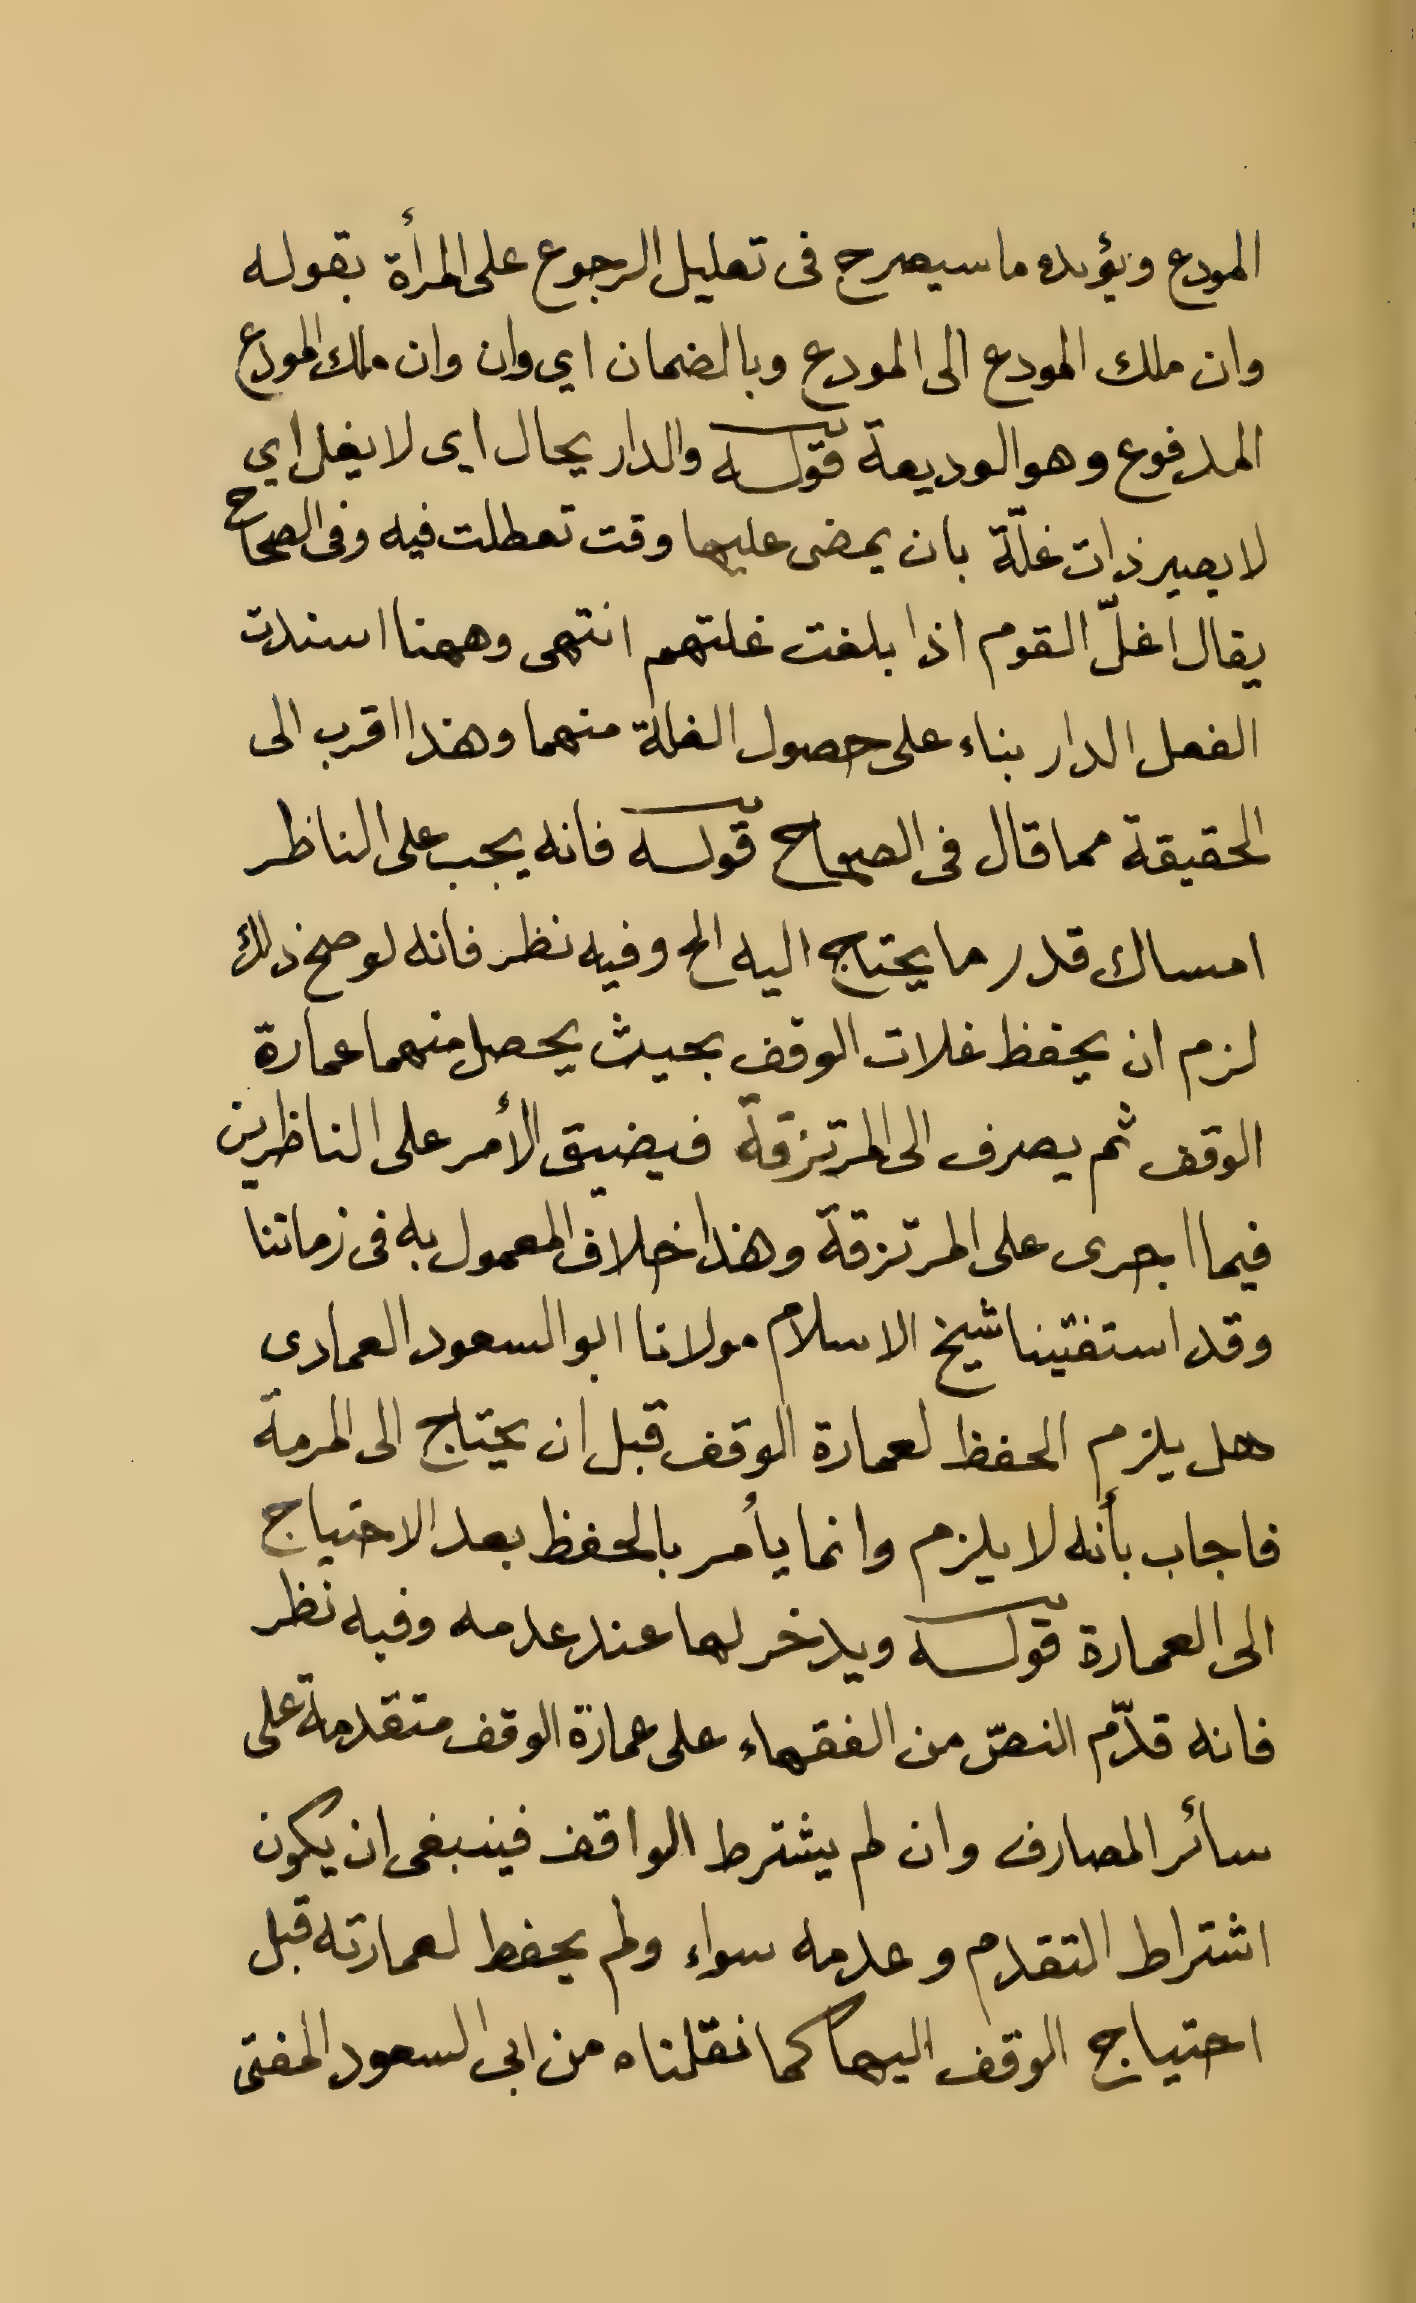 المودع ويؤيده ما سيصرح فى تعليل الرجوع على المرأة بقوله
وان ملك المودع الى المودع وبالضمان اي وان وان ملك المودع
المدفوع وهو الوديعة قوله والدار يحال اى لا يغل اي
لا يصير ذات غلّة بان يمضى عليها وقت تعطلت فيه وفى الصحاح
يقال اغلّ القوم اذا بلغت غلتهم انتهى وههنا اسندت
الفعل الدار بناء على حصول الغلة منهما وهذا اقرب الى
الحقيقة مما قال فى الصحاح قوله فانه يجب على الناظر
امساك قدر ما يحتاج اليه الخ وفيه نظر فانه لو صح ذلك
لزم ان يحفظ غلات الوقف بحيث يحصل منهما عمارة
الوقف ثم يصرف الى المرتزقة فيضيق الأمر على الناظرين
فيما اجرى على المرتزقة وهذا خلاف المعمول به فى زماننا
وقد استفتينا شيخ الاسلام مولانا ابو السعود العمادى
هل يلزم الحفظ لعمارة الوقف قبل ان يحتاج الى المرمة
فاجاب بأنه لا يلزم وانما يأمر بالحفظ بعد الاحتياج
الى العمارة قوله ويدخر لها عند عدمه وفيه نظر
فانه قدّم النصّ من الفقهاء على عمارة الوقف متقدمة على
سائر المصارف وان لم يشترط الواقف فينبغى ان يكون
اشتراط التقدم وعدمه سواء ولم يحفط لعمارته قبل
احتياج الوقف اليها كما نقلناه من ابى السعود المفتى